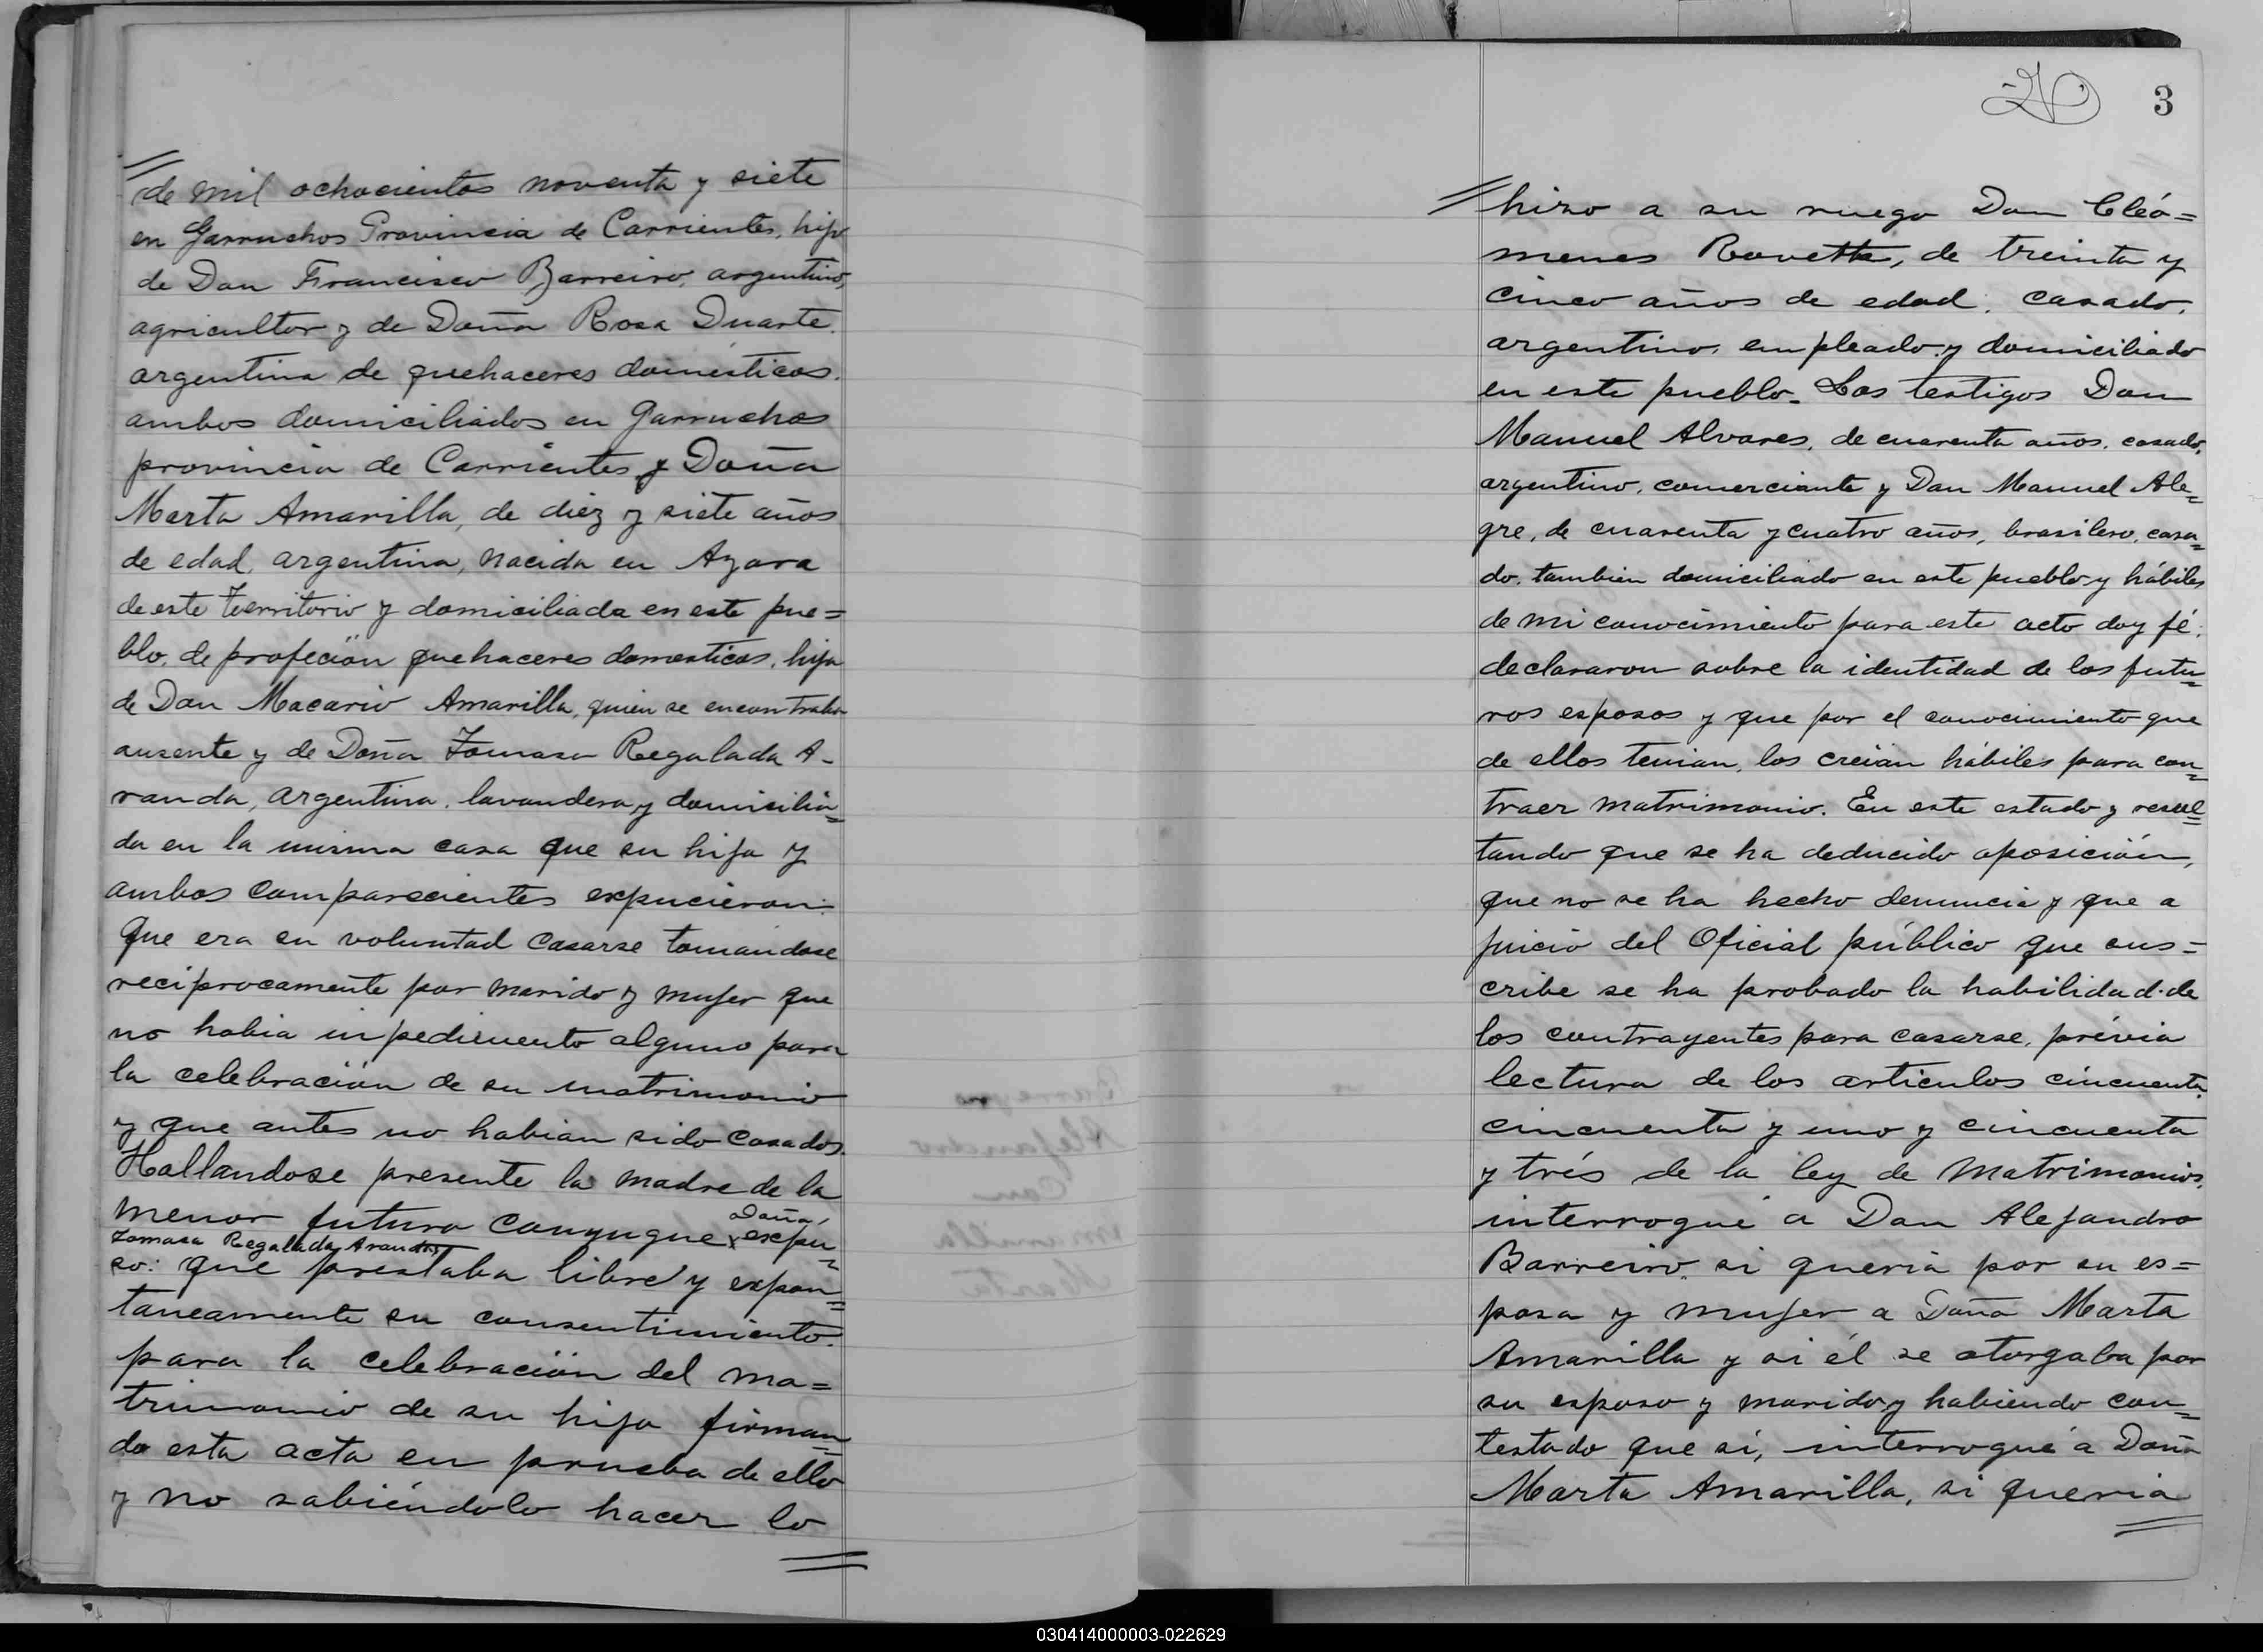 de mil ochocientos noventa y siete
en Garruchos Provincia de Corrientes, hijo
de Don Francisco Barreiro, argentino,
agricultor y de Doña Rosa Duarte.
argentina de quehaceres domésticos.
ambos domiciliados en Garruchos
provincia de Corrientes y Doña
Marta Amarilla, de diez y siete años
de edad, argentina, nacida en Azara
de este territorio y domiciliada en este pue=
blo, de profeción quehaceres domesticos, hija
de Don Macario Amarilla, quien se encontraba
ausente y de Doña Tomasa Regalada A-
randa, argentina, lavandera y domicilia=
da en la misma casa que su hija y
ambos comparecientes expucieron:
Que era su voluntad casarse tomandose
reciprocamente por marido y mujer que
no habia inpedimento alguno para
la celebración de su matrimonio
y que antes no habian sido casados.
Hallandose presente la madre de la
menor futura conyugue x Doña, expu=
Tomasa Regalada Aranda,
so: que prestaba libre y expon=
taneamente su consentimiento.
para la celebración del ma=
trimonio de su hija firman=
do esta acta en prueba de ello
y no sabiéndolo hacer lo
3
hizo a su ruego Don Cleó=
menes Rovetta, de treinta y
cinco años de edad, casado,
argentino, empleado y domiciliado
en este pueblo. Los testigos Don
Manuel Alvares, de cuarenta años, casado,
argentino, comerciante y Don Manuel Ale=
gre, de cuarenta y cuatro años, brasilero, casa=
do, tambien domiciliado en este pueblo y hábiles
de mi conocimiento para este acto doy fé;
declararon sobre la identidad de los futu=
ros esposos y que por el conocimiento que
de ellos tenian, los creian hábiles para con=
traer matrimonio. En este estado y resul=
tando que se ha deducido oposición,
que no se ha hecho denuncia y que a
juicio del Oficial público que sus=
cribe se ha probado la habilidad de
los contrayentes para casarse, prévia
lectura de los articulos cincuenta,
cincuenta y uno y cincuenta
y trés de la ley de Matrimonios,
interrogué a Don Alejandro
Barreiro, si queria por su es=
posa y mujer a Doña Marta
Amarilla y si él se otorgaba por
su esposo y marido y habiendo con=
testado que sí, interrogué a Doña
Marta Amarilla, si queria
030414000003-022629